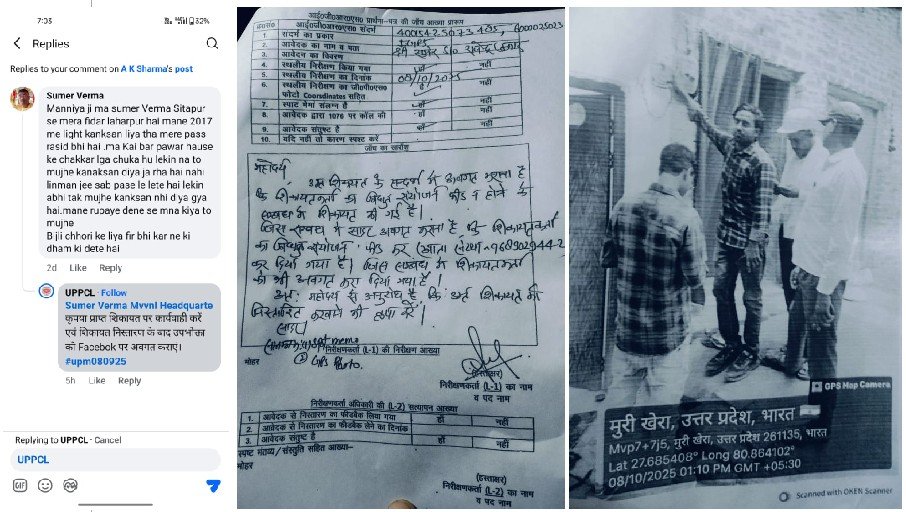 7:03
62%
Replies
Replies to your comment on A K Sharma's post
Sumer Verma
Manniya ji ma sumer Verma Sitapur
se mera fidar laharpur hai mane 2017
me light kanksan liya tha mere pass
rasid bhi hai .ma Kai bar pawar hause
ke chakkar lga chuka hu lekin na to
mujhe kanaksan diya ja rha hai nahi
linman jee sab paise le lete hai lekin
abhi tak mujhe kanksan nhi diya gya
hai.mane rupaye dene se mna kiya to
mujhe
Bijli chhori ke liya fir bhi kar ne ki
dham ki dete hai
2d Like Reply
UPPCL · Follow
Sumer Verma Mvvnl Headquarte
कृपया प्राप्त शिकायत पर कार्यवाही करें
एवं शिकायत निस्तारण के बाद उपभोक्ता
को Facebok पर अवगत कराए।
#upm080925
5h Like Reply
Replying to UPPCL · Cancel
UPPCL
GIF
आई०जी०आर०एस० प्रार्थना-पत्र की जाँच आख्या प्रारूप
क्र०सं० आई०जी०आर०एस० संदर्भ
1. संदर्भ का प्रकार
2. आवेदक का नाम व पता
3. आवेदन का विवरण
4. स्थलीय निरीक्षण किया गया हाँ नहीं
5. स्थलीय निरीक्षण का दिनांक 08/10/2025
6. स्थलीय निरीक्षण का जी०पी०एस०
फोटो Coordinates सहित हाँ नहीं
7. स्पाट मेमो संलग्न है हाँ नहीं
8. आवेदक द्वारा 1076 पर कॉल की हाँ नहीं
9. आवेदक संतुष्ट है हाँ नहीं
10. यदि नहीं तो कारण स्पष्ट करें
जाँच का सारांश
महोदय
उक्त शिकायत के सन्दर्भ में अवगत कराना है
कि शिकायतकर्ता का विद्युत संयोजन फीड न होने के
सम्बन्ध में शिकायत की गई है।
जिस सम्बन्ध में सादर अवगत कराना है कि शिकायतकर्ता
का विद्युत संयोजन फीड कर
कर दिया गया है। जिस सम्बन्ध में शिकायतकर्ता
को भी अवगत करा दिया गया है।
अतः महोदय से अनुरोध है कि उक्त शिकायत को
निस्तारित करवाने की कृपा करें।
सादर
मोहर
GPS Photo.
निरीक्षणकर्ता (L-1) की निरीक्षण आख्या
(हस्ताक्षर)
निरीक्षणकर्ता (L-1) का नाम
व पद नाम
निरीक्षणकर्ता अधिकारी की (L-2) सत्यापन आख्या
1. आवेदक से निस्तारण का फीडबैक लिया गया हाँ नहीं
2. आवेदक से निस्तारण का फीडबैक लेने का दिनांक
3. आवेदक संतुष्ट है हाँ नहीं
स्पष्ट मंतव्य/संस्तुति सहित आख्या-
मोहर
(हस्ताक्षर)
निरीक्षणकर्ता (L-2) का नाम
व पद नाम
GPS Map Camera
मुरी खेरा, उत्तर प्रदेश, भारत
Mvp7+7j5, मुरी खेरा, उत्तर प्रदेश 261135, भारत
Lat 27.685408° Long 80.864102°
08/10/2025 01:10 PM GMT +05:30
Scanned with OKEN Scanner